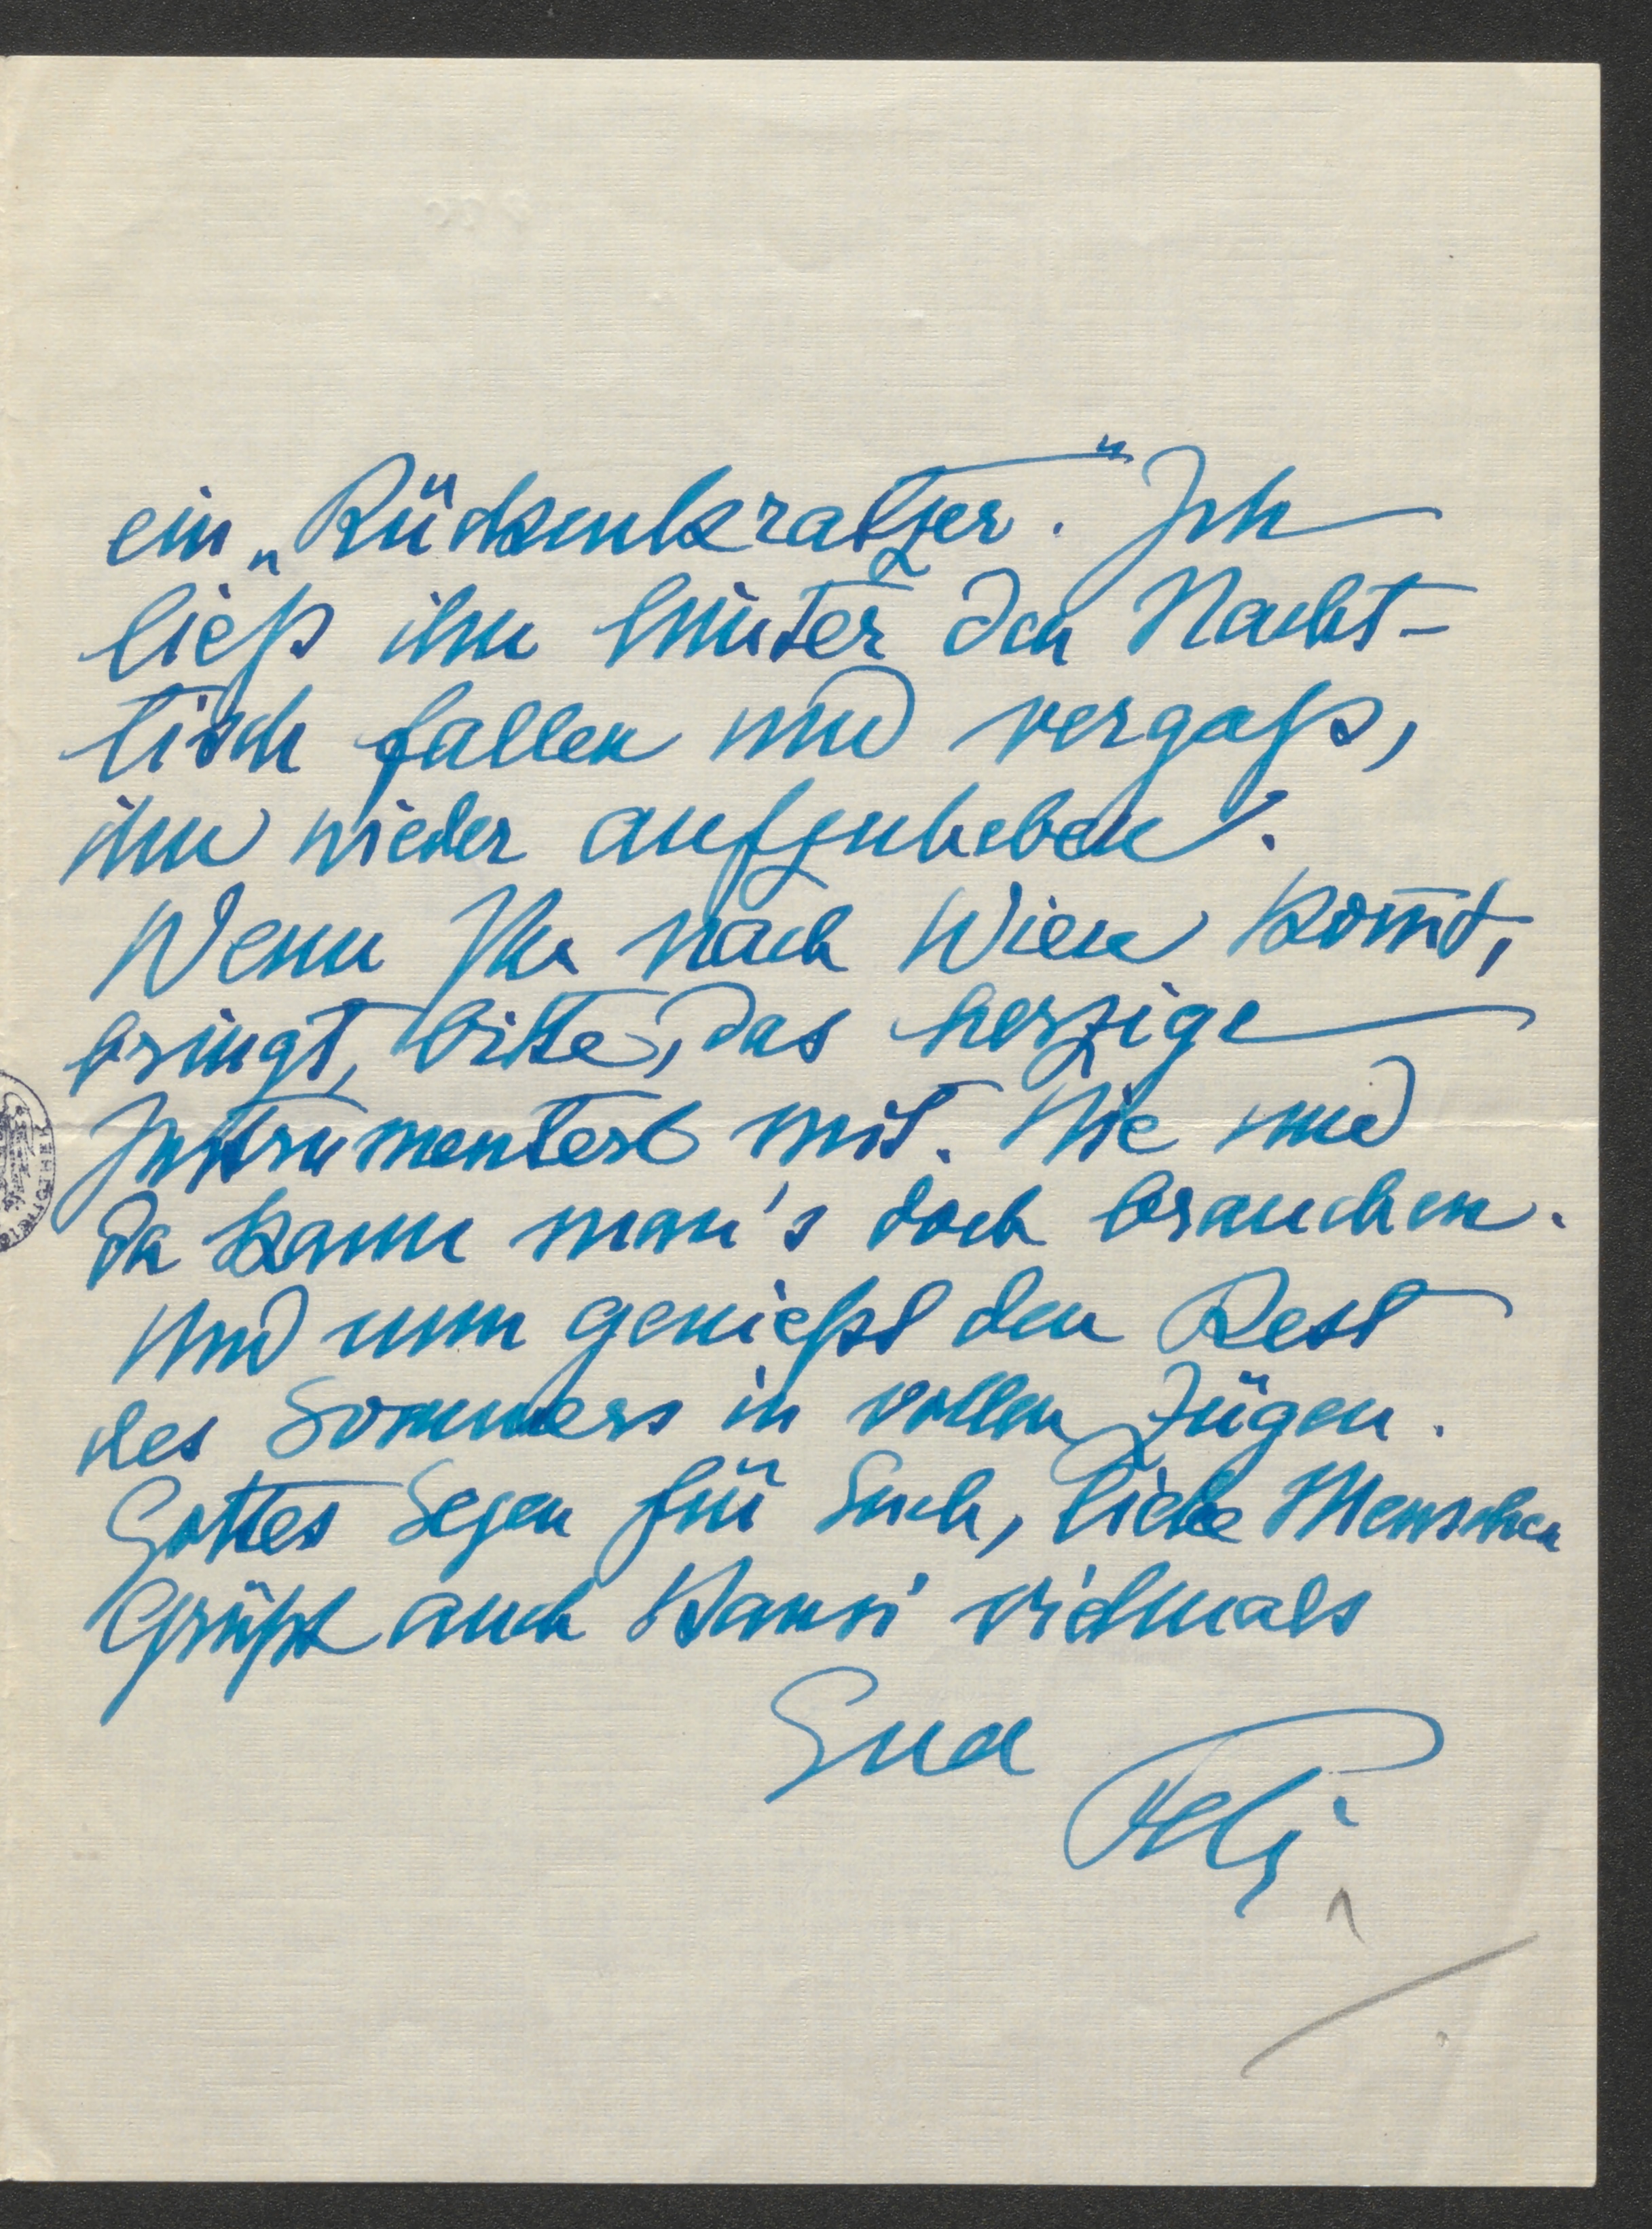 ein „Rückenkratzer." Ich
ließ ihn hinter den Nacht-
tisch fallen und vergaß,
ihn wieder aufzuheben.
Wenn Ihr nach Wien kom̅t,
bringt, bitte, das herzige
Instrumenterl mit. Hie und
da kann man's doch brauchen.
Und nun genießt den Rest
des Sommers in vollen Zügen.
Gottes Segen für Euch, liebe Menschen
Grüßt auch Hansi vielmals
Euer